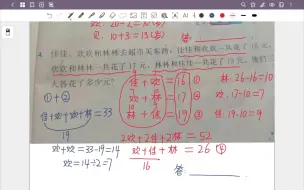 欢. 20-2=10(
贝. 10+3=13(
答:
4. 佳佳、欢欢和林林去超市买东西，佳佳和欢欢一共花了16元，
欢欢和林林一共花了17元，林林和佳佳一共花了19元，
人各花了多少元？
佳+欢=16 ① 林. 26-16=10
①+② 欢+林=17 ② 欢. 17-10=7
佳+欢+欢+林=33 林+佳=19 ③ 佳. 19-10=9
19 2欢+2佳+2林=52
欢+欢=33-19=14 欢+佳+林=26 ④
欢=14÷2=7 16 答: